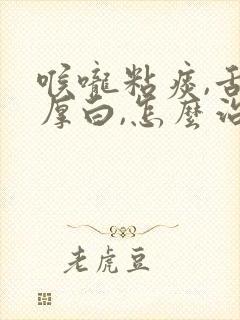 喉嚨粘痰,舌
厚白,怎麼治
老虎豆